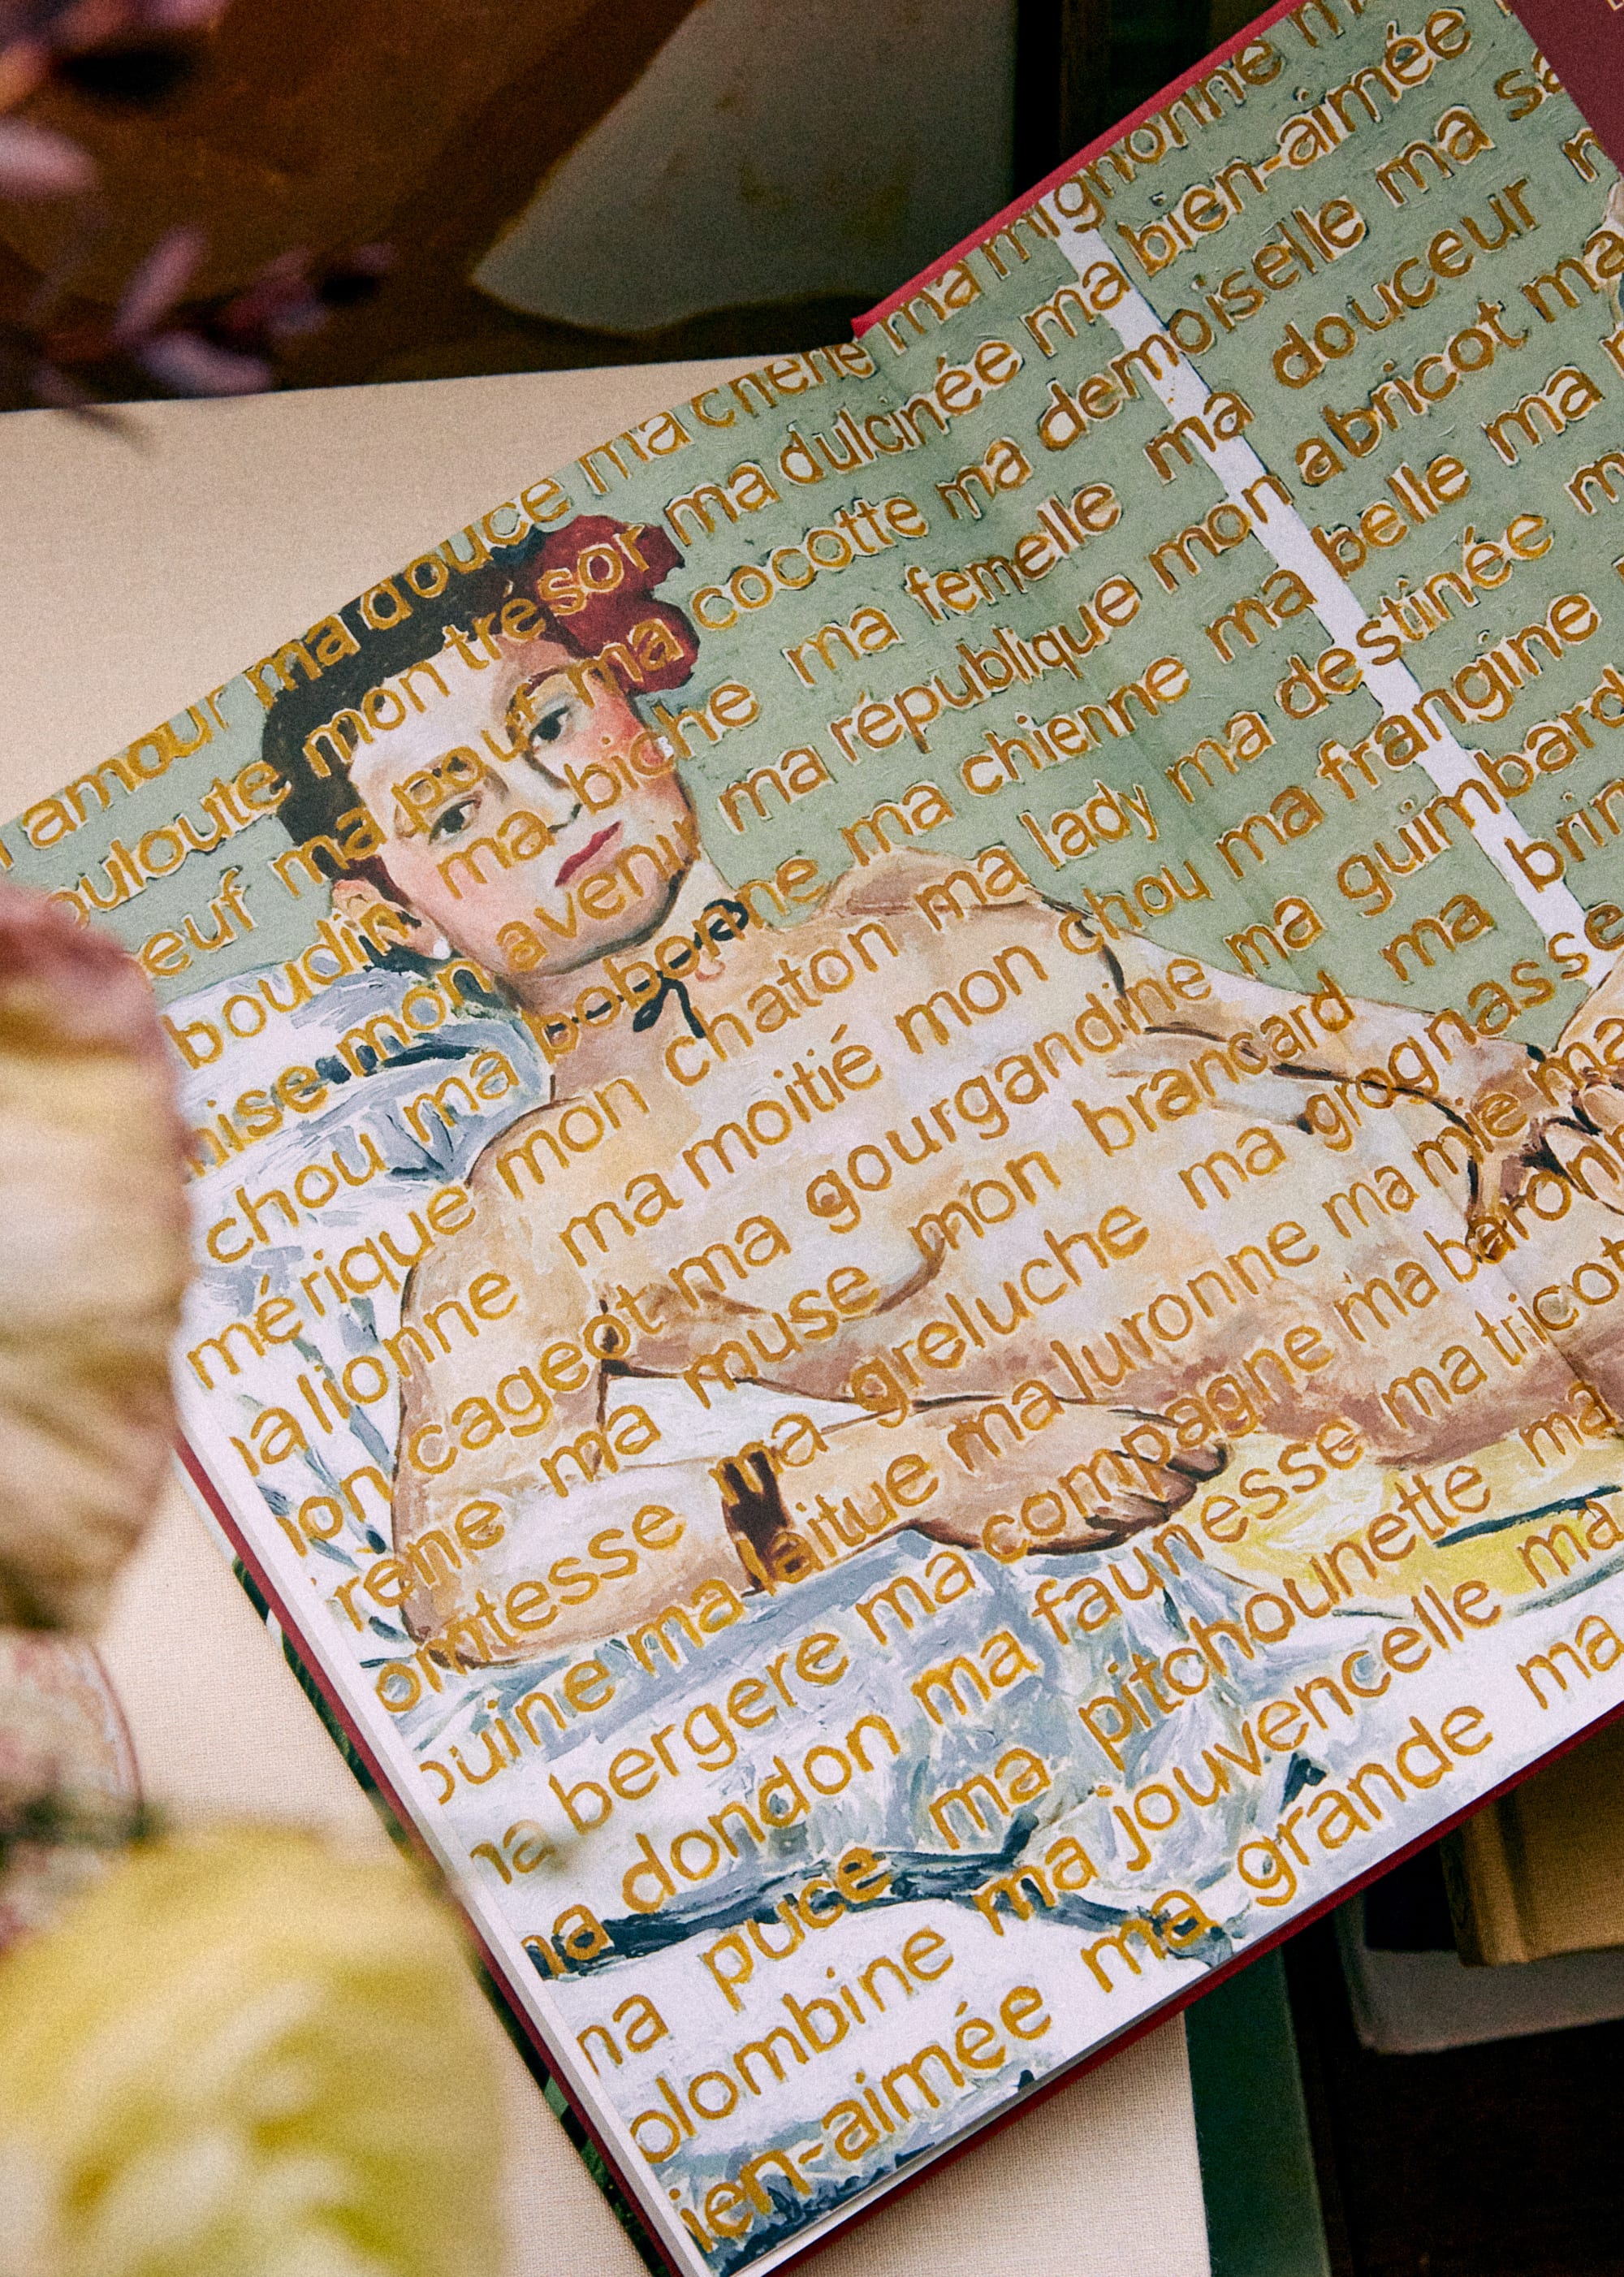 amour ma douce ma cherie ma mignonne
ouloute mon trésor ma dulcinée ma bien-aimée
euf ma pouf ma cocotte ma demoiselle ma sa
boudin ma biche ma femelle ma douceur
mise mon avenir ma république mon abricot ma
chou ma bobonne ma chienne ma belle ma
mérique mon chaton ma lady ma destinée m
a lionne ma moitié mon chou ma frangine
on cageot ma gourgandine ma guimbard
rene ma muse mon brancard ma brin
omtesse ma greluche ma grognasse
ouine ma laitue ma luronne ma mie ma
na bergere ma compagne ma baronn
na dondon ma faunesse ma tricot
na puce ma pitchounette ma
olombine ma jouvencelle ma
ien-aimée ma grande ma